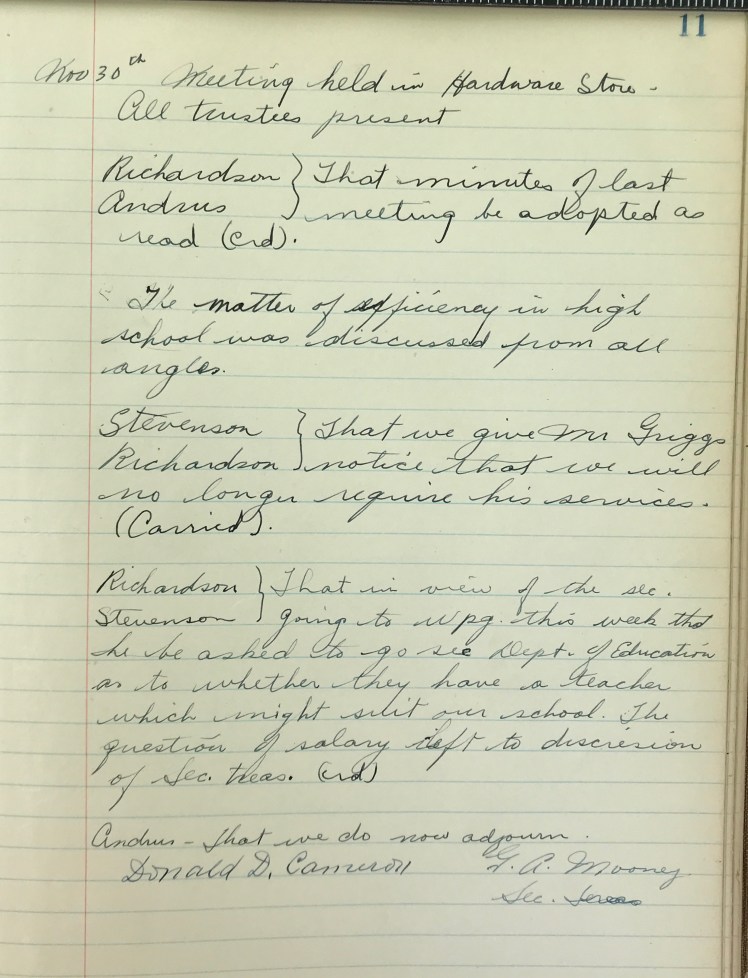 11
Nov 30th Meeting held in Hardware Store -
All trustees present
Richardson } That minutes of last
Andrus } meeting be adopted as
read (crd).
The matter of efficiency in high
school was discussed from all
angles.
Stevenson } That we give Mr Griggs
Richardson } notice that we will
no longer require his services.
(Carried).
Richardson } That in view of the sec.
Stevenson } going to Wpg. this week that
he be asked to go see Dept. of Education
as to whether they have a teacher
which might suit our school. The
question of salary left to discresion
of Sec. treas. (crd)
Andrus - that we do now adjourn.
Donald D. Cameron G. A. Mooney
Sec. Treas